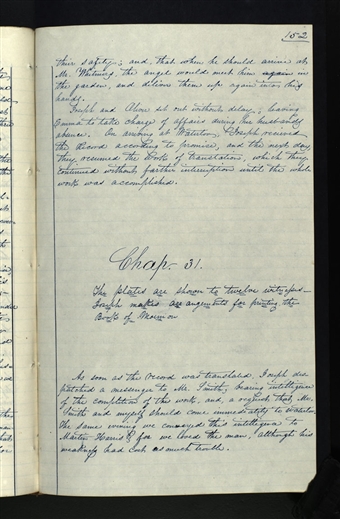 152
their safety; and, that when he should arrive at
Mr. Whitmers, the angel would meet him again in
the garden, and deliver them up again into his
hands.
Joseph and Oliver set out without delay; leaving
Emma to take charge of affairs during her husband's
absence. On arriving at Waterloo, Joseph received
the Record according to promise, and the next day
they resumed the work of translation, which they
continued without farther interruption until the whole
work was accomplished.
Chap. 31.
The plates are shown to twelve witnesses—
Joseph makes arangements for printing the
Book of Mormon
As soon as the record was translated, Joseph des
patched a messenger to Mr. Smith, bearing intelligence
of the completion of the work, and, a request, that Mr.
Smith and myself should come immediately to Waterloo.
The same evening we conveyed this intelligence to
Martin Harris, for we loved the man, although his
weakness had cost us much trouble.